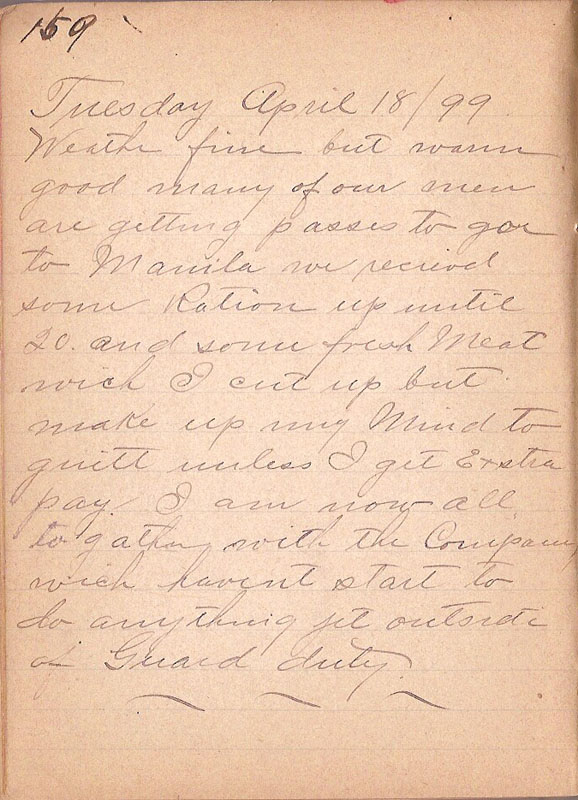 159
Tuesday April 18/99
Weathe fine but warm
good many of our men
are getting passes to goe
to Manila we recievd
some Ration up until
20. and some fresh Meat
wich I cut up but
make up my Mind to
quitt unless I get Exstra
pay. I am now all
to gather with the Company
wich havent start to
do anything jet outside
of Guard duty.